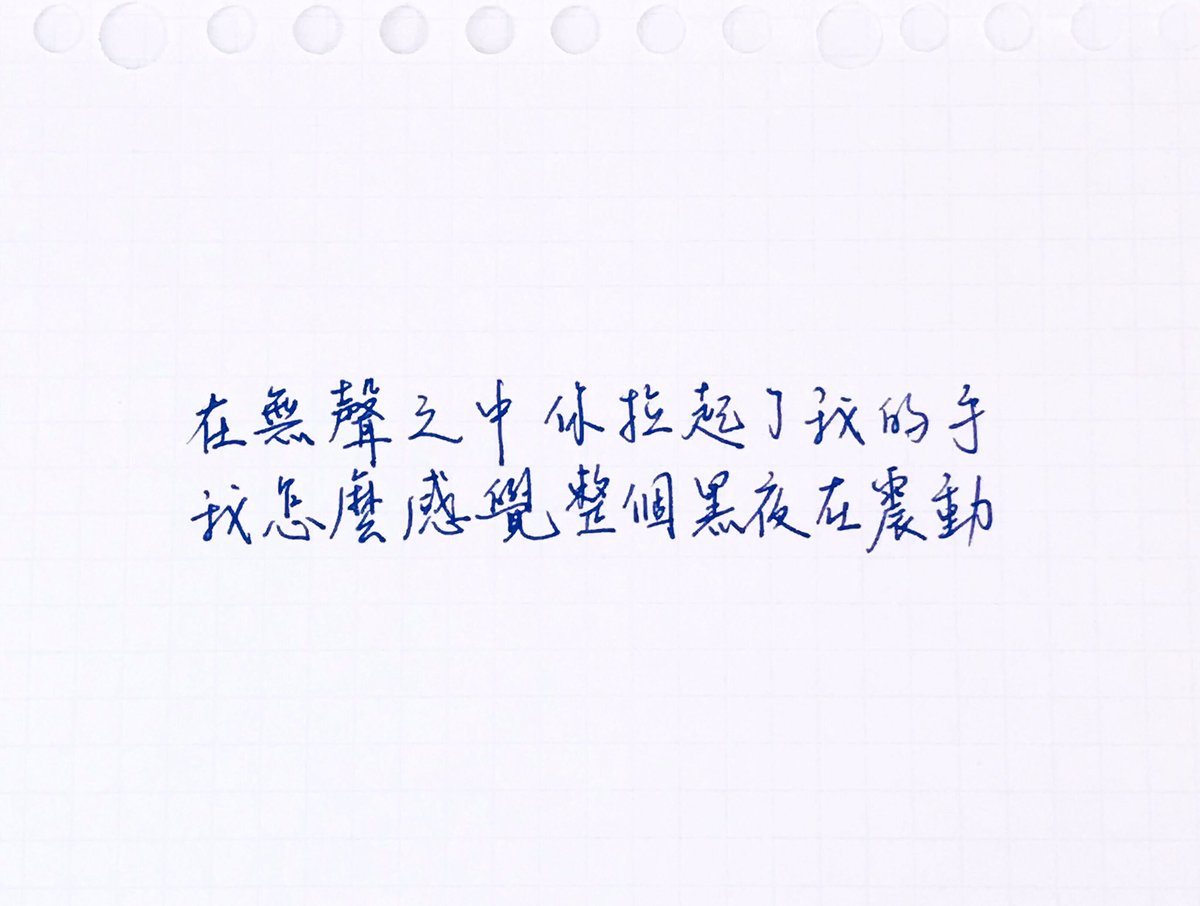 在無聲之中你拉起了我的手
我怎麼感覺整個黑夜在震動